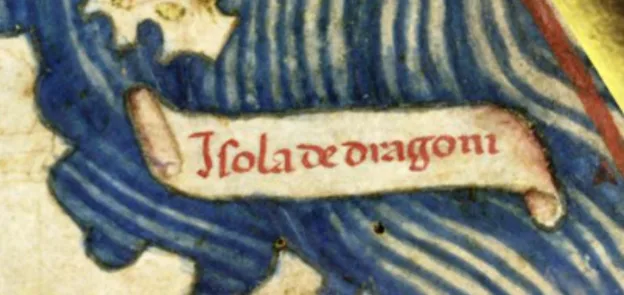 Isola de dragoni